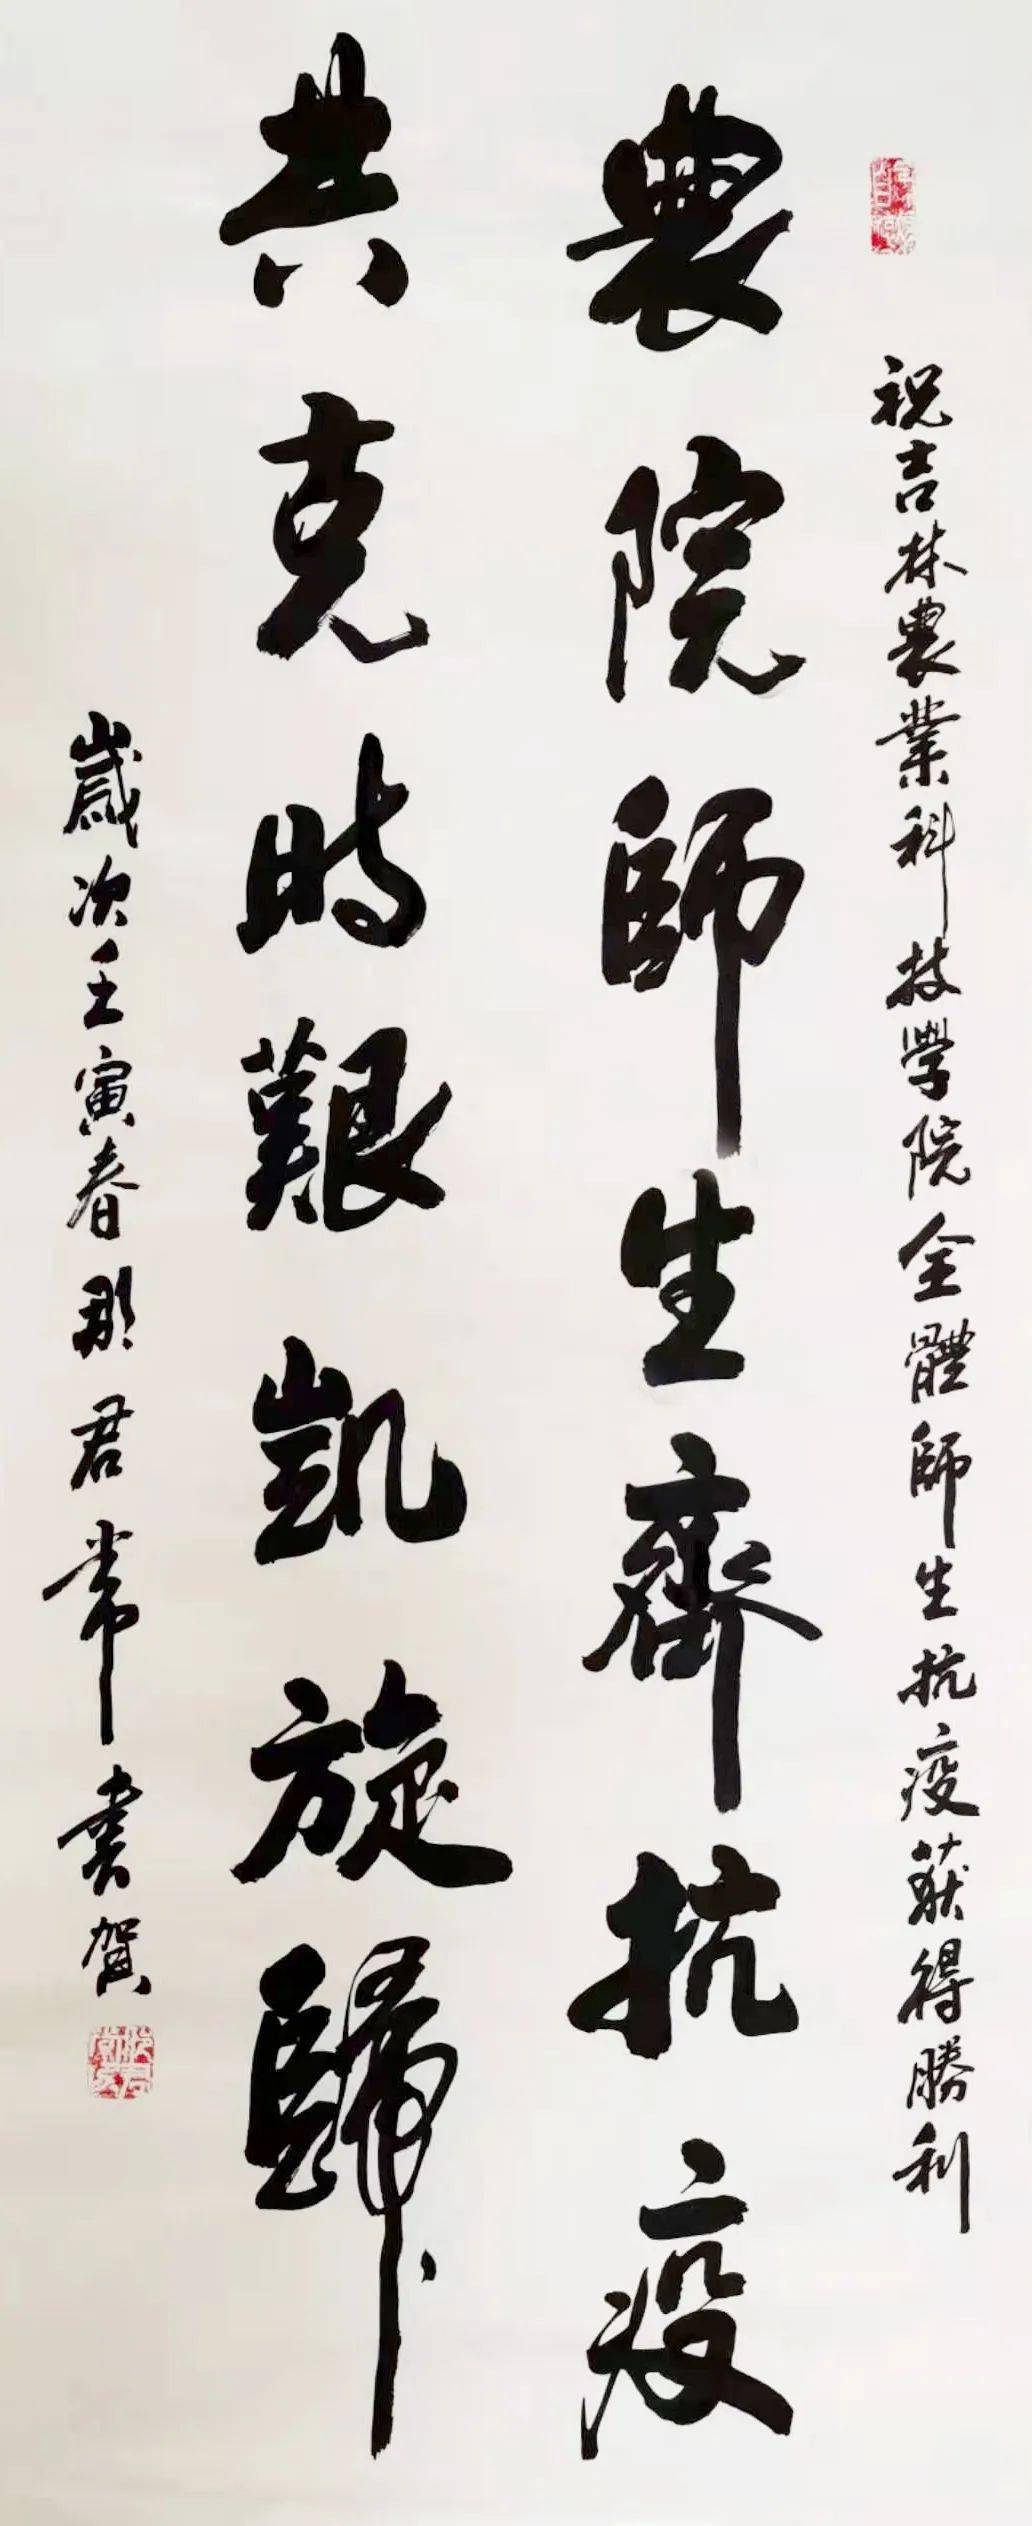 祝吉林農業科技學院全體師生抗疫获得勝利
農院師生齊抗疫
共克時艱凱旋歸
歲次壬寅春那君常書賀